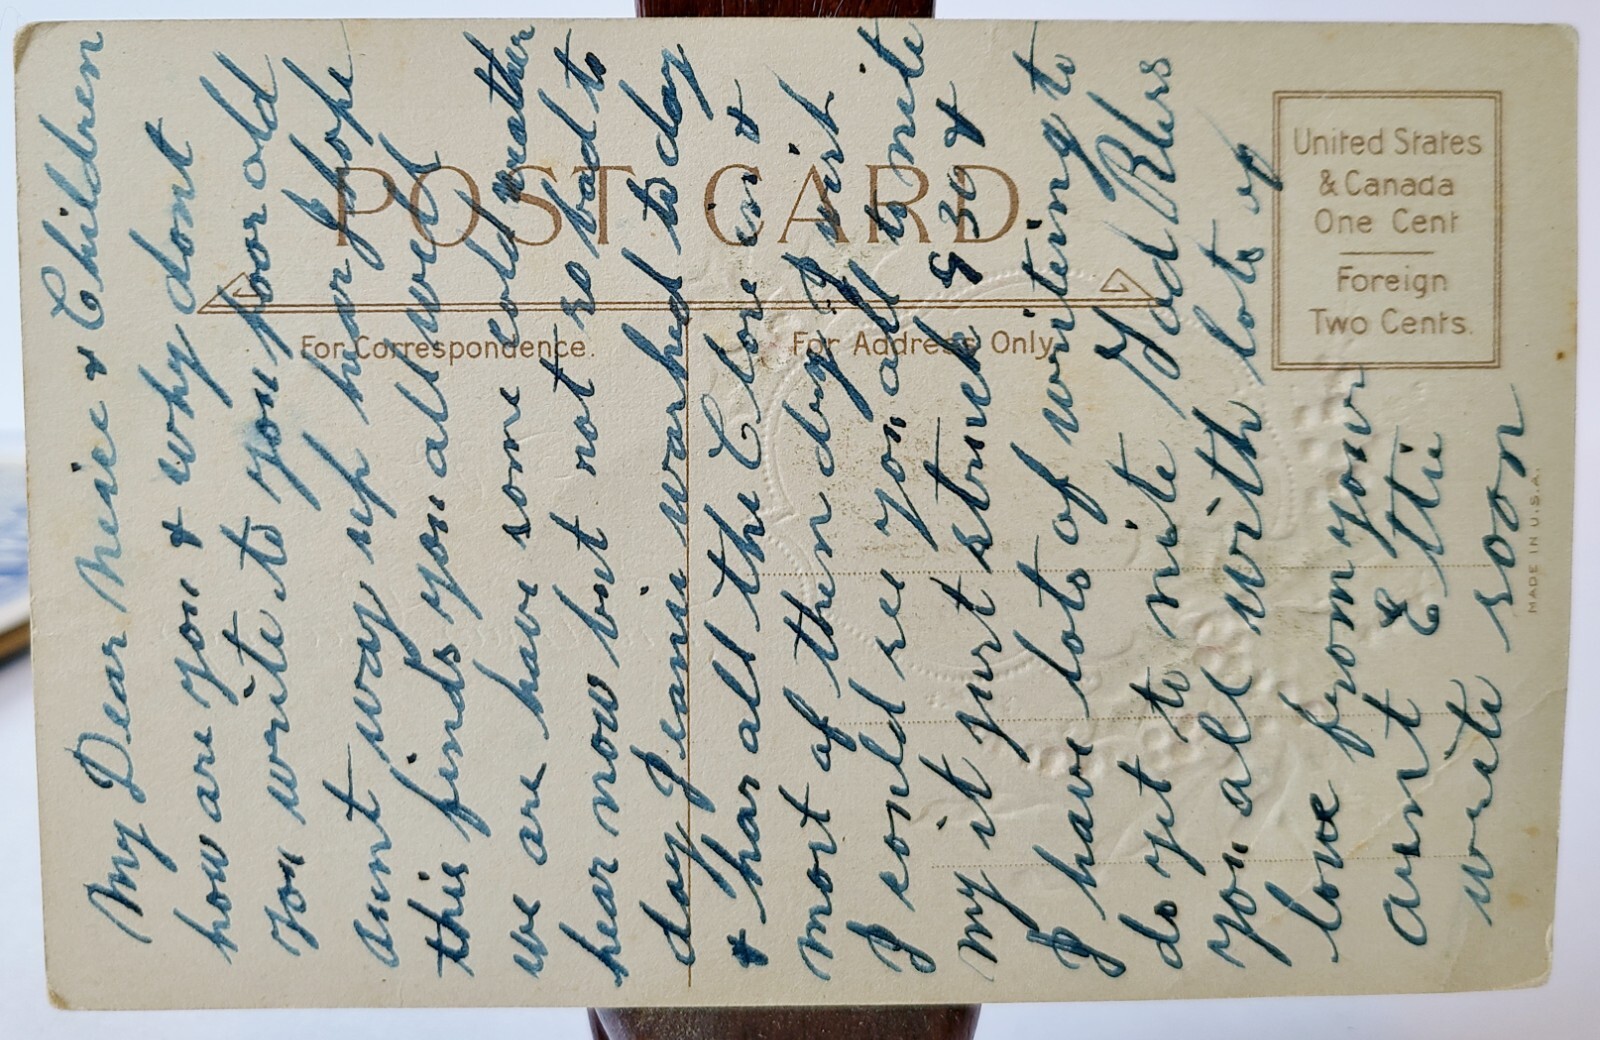 My Dear Neice & Children
how are you & why dont
you write to you poor old
aunt way up hear I hope
this finds you all well
we are have some cold weather
hear now but not so bad to
day Jennie warked to day
& has all the Clore in &
most of then dry I wish
I could see you all to nite
my it just struck 9 30 &
I have lots of writeing to
do yet to nite God Bless
you all with lots of
love from your
aunt Ettie
write soon
POST CARD
For Correspondence.
For Address Only.
United States
& Canada
One Cent
Foreign
Two Cents.
MADE IN U.S.A.